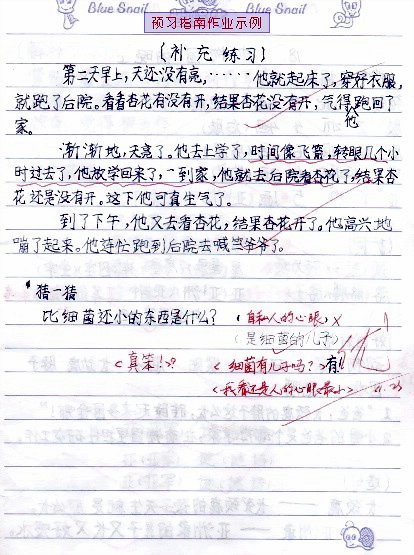 Blue Snail
Blue Snail
预习指南作业示例
(补充练习)
第二天早上,天还没有亮,……他就起床了,穿好衣服,
就跑了后院。看看杏花有没有开,结果杏花没有开,气得跑回了
他
家。
渐渐地,天亮了。他去上学了,时间像飞箭,转眼几个小
时过去了,他放学回来了,一到家,他就去后院看杏花了,结果杏
花还是没有开。这下他可真生气了。
到了下午,他又去看杏花,结果杏花开了。他高兴地
蹦了起来。他连忙跑到后院去喊爷爷了。
猜一猜
比细菌还小的东西是什么?(自私人的心眼)×
(是细菌的儿子)
优
<真笨!>?
<细菌有儿子吗?>有!!
<我看还是人的心眼最小>